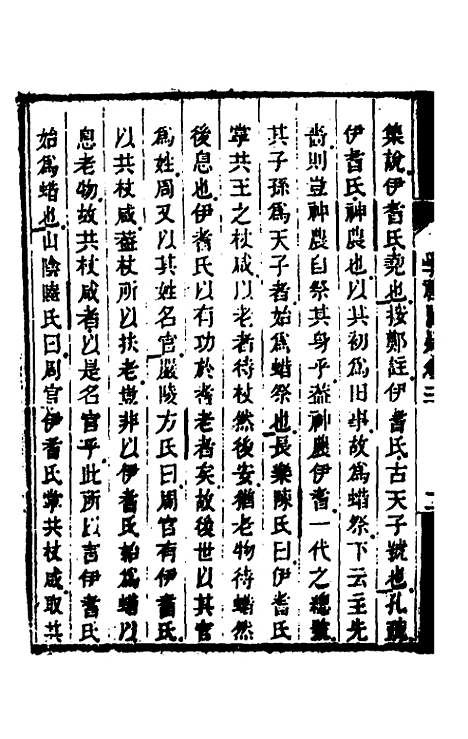 集說伊耆氏堯也按鄭註伊耆氏古天子號也孔疏
伊耆氏神農也以其初為田事故為蜡祭下云主先
嗇則豈神農自祭其身乎蓋神農伊耆一代之總號
其子孫為天子者始為蜡祭也長樂陳氏曰伊耆氏
掌共王之杖咸以老者待杖然後安猶老物待蜡然
後息也伊耆氏以有功於耆老者矣故後世以其官
為姓周又以其姓名官嚴陵方氏曰周官有伊耆氏
以共杖咸蓋杖所以扶老豈非以伊耆氏始為蜡以
息老物故共杖咸者以是名官乎此所以言伊耆氏
始為蜡也山陰陸氏曰周官伊耆氏掌共杖咸取其